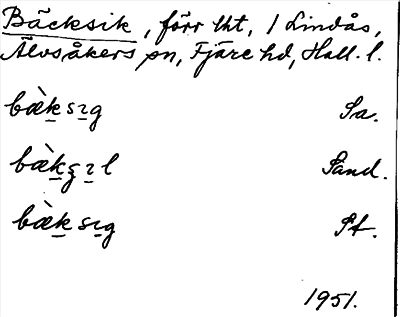 Bäcksik, förr lht, 1 Lindås,
Älvsåkers sn, Fjäre hd, Hall. l.
bæ̀k sɪg Sa.
bæ̀kʂɪl Sand.
bæ̀k sɪg St.
1951.